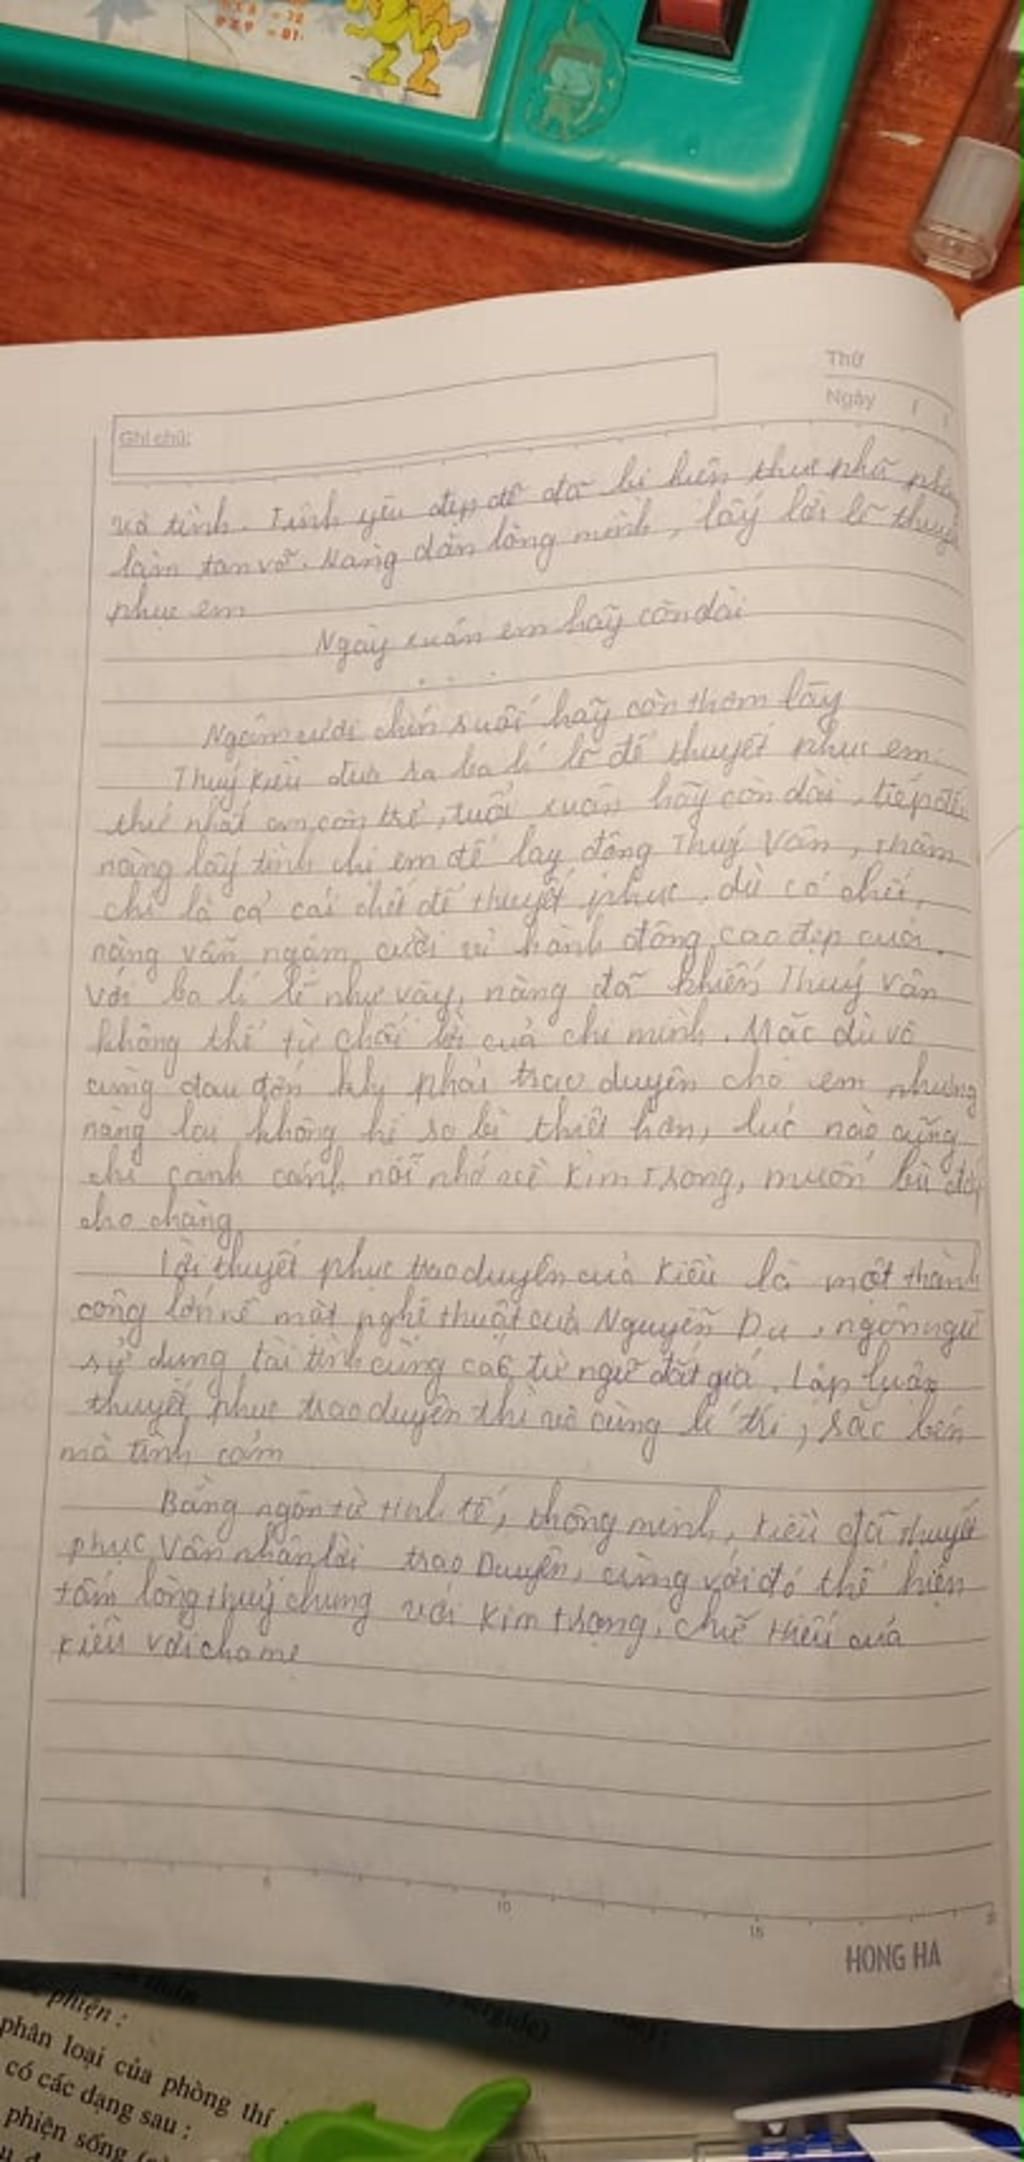 9 x 9 = 81
Thứ
Ngày / /
Ghi chú:
và tình. Tình yêu đẹp đẽ đã bị hiện thực phũ phà
làm tan vỡ. Nàng dằn lòng mình, lấy lời lẽ thuyế
phục em
Ngày xuân em hãy còn dài
. . .
Ngậm cười chín suối hãy còn thơm lây
Thuý Kiều đưa ra ba lí lẽ để thuyết phục em:
thứ nhất em còn trẻ, tuổi xuân hãy còn dài, tiếp đế
nàng lấy tình chị em để lay động Thuý Vân, thậm
chí là cả cái chết để thuyết phục, dù có chết,
nàng vẫn ngậm cười vì hành động cao đẹp cuối.
Với ba lí lẽ như vậy, nàng đã khiến Thuý Vân
không thể từ chối lời của chị mình. Mặc dù vô
cùng đau đớn khi phải trao duyên cho em nhưng
nàng lại không hề so bì thiệt hơn, lúc nào cũng
chỉ canh cánh nỗi nhớ về Kim Trọng, muốn bù đắp
cho chàng
Lời thuyết phục trao duyên của Kiều là một thành
công lớn về mặt nghệ thuật của Nguyễn Du, ngôn ngữ
sử dụng tài tình cùng các từ ngữ đắt giá. Lập luận
thuyết phục trao duyên thì vô cùng lí trí, sắc bén
mà tình cảm
Bằng ngôn từ tinh tế, thông minh, Kiều đã thuyết
phục Vân nhận lời trao Duyên, cùng với đó thể hiện
tấm lòng thuỷ chung với Kim Trọng, chữ Hiếu của
Kiều với cha mẹ
5 10 15
HONG HA
phiện :
phân loại của phòng thí
có các dạng sau :
phiện sống